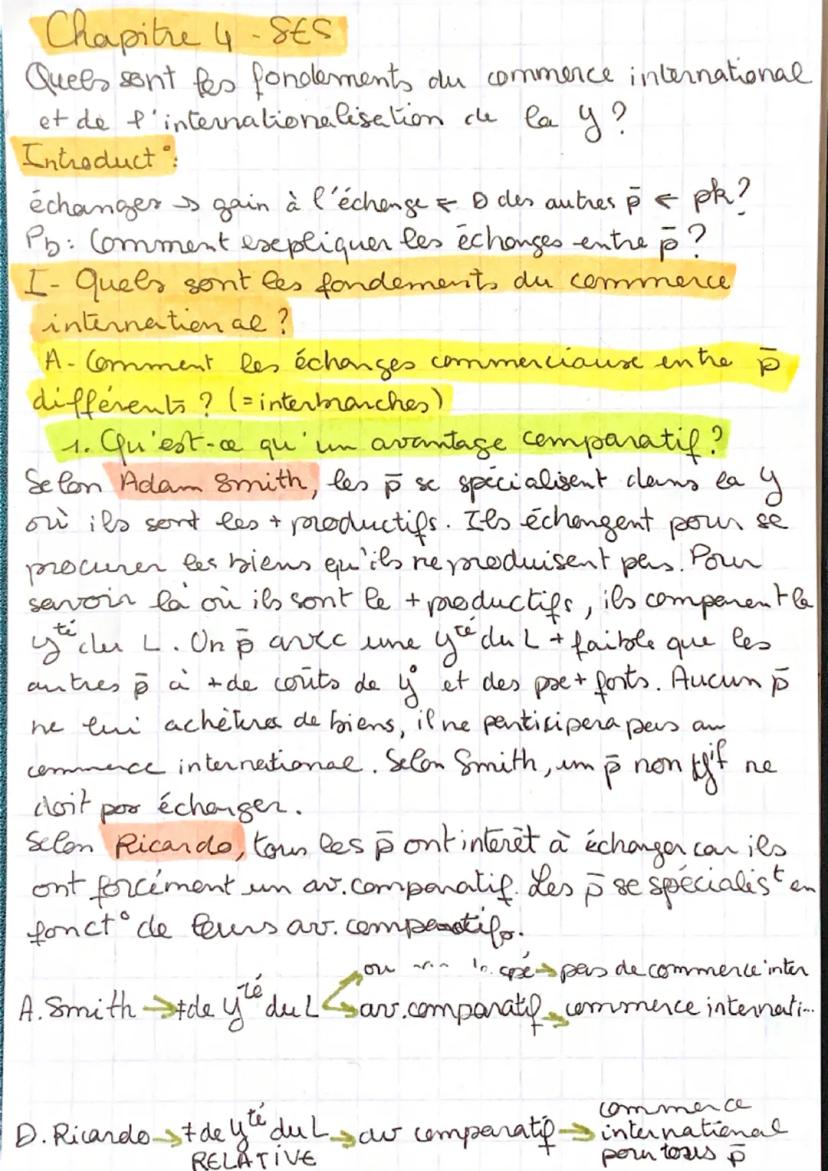 Chapitre 4 - SES
Quels sont les fondements du commerce international
et de l'internationalisation de la y ?
Introduct° :
échanger → gain à l'échange ← D des autres p̄ ← pk ?
Pb : Comment expliquer les échanges entre p̄ ?
I - Quels sont les fondements du commerce
international ?
A - Comment les échanges commerciaux entre p̄
différents ? (= interbranches)
1. Qu'est-ce qu'un avantage comparatif ?
Selon Adam Smith, les p̄ se spécialisent dans la y
où ils sont les + productifs. Ils échangent pour se
procurer les biens qu'ils ne produisent pas. Pour
savoir là où ils sont le + productifs, ils comparent la
yté du L. Un p̄ avec une yté du L + faible que les
autres p̄ à + de coûts de y° et des px + forts. Aucun p̄
ne lui achètera de biens, il ne participera pas au
commerce international. Selon Smith, un p̄ non yif ne
doit pas échanger.
Selon Ricardo, tous les p̄ ont intérêt à échanger car ils
ont forcément un av. comparatif. Les p̄ se spécialist en
fonct° de leurs av. comparatifs.
ou → pas de commerce inter
A. Smith → ≠ de yté du L → av. comparatif → commerce internati...
D. Ricardo → ≠ de yté du L → av comparatif → commerce
RELATIVE international
pour tous p̄